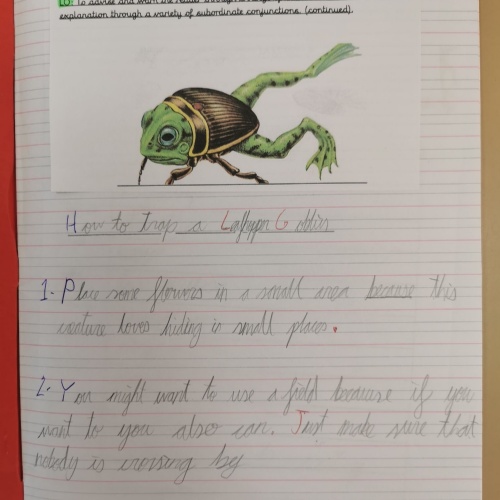 LO: To advise and warn the reader through
explanation through a variety of subordinate conjunctions. (continued).
How to trap a
1- Place some flowers in a small area because this
creature loves hiding in small places.
2- You might want to use a field because if you
want to you also can. Just make sure that
nobody is crossing by